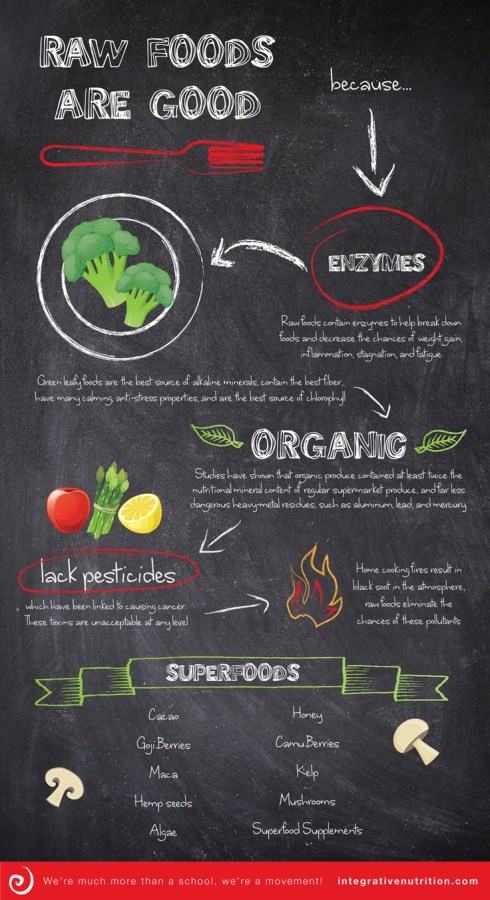 RAW FOODS
ARE GOOD
because...
ENZYMES
Raw foods contain enzymes to help break down
foods and decrease the chances of weight gain,
inflammation, stagnation, and fatigue
Green leafy foods are the best source of alkaline minerals, contain the best fiber,
have many calming, anti-stress properties, and are the best source of chlorophyll
ORGANIC
Studies have shown that organic produce contained at least twice the
nutritional mineral content of regular supermarket produce, and far less
dangerous heavy-metal residues, such as aluminum, lead, and mercury.
lack pesticides
which have been linked to causing cancer.
These toxins are unacceptable at any level
Home cooking fires result in
black soot in the atmosphere,
raw foods eliminate the
chances of these pollutants
SUPERFOODS
Cacao
Honey
Goji Berries
Camu Berries
Maca
Kelp
Hemp seeds
Mushrooms
Algae
Superfood Supplements
We're much more than a school, we're a movement! integrativenutrition.com